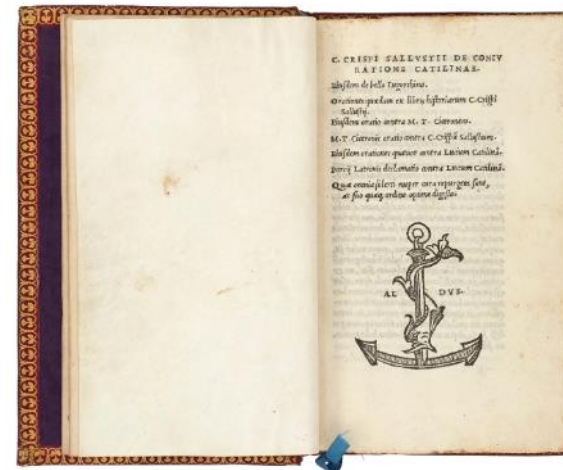 C. CRISPI SALLVSTII DE CONIV
RATIONE CATILINAE.
Eiusdem de bello Iugurthino.
Orationes quædam ex libris historiarum C. Crispi
Sallustij.
Eiusdem oratio contra M. T. Ciceronem.
M. T. Ciceronis oratio contra C. Crispū Sallustium.
Eiusdem orationes quatuor contra Lucium Catilinā.
Porcij Latronis declamatio contra Lucium Catilinā.
Quæ omnia solerti nuper cura repurgata sunt,
ac suo quæq; ordine optime digesta.
AL DVS.